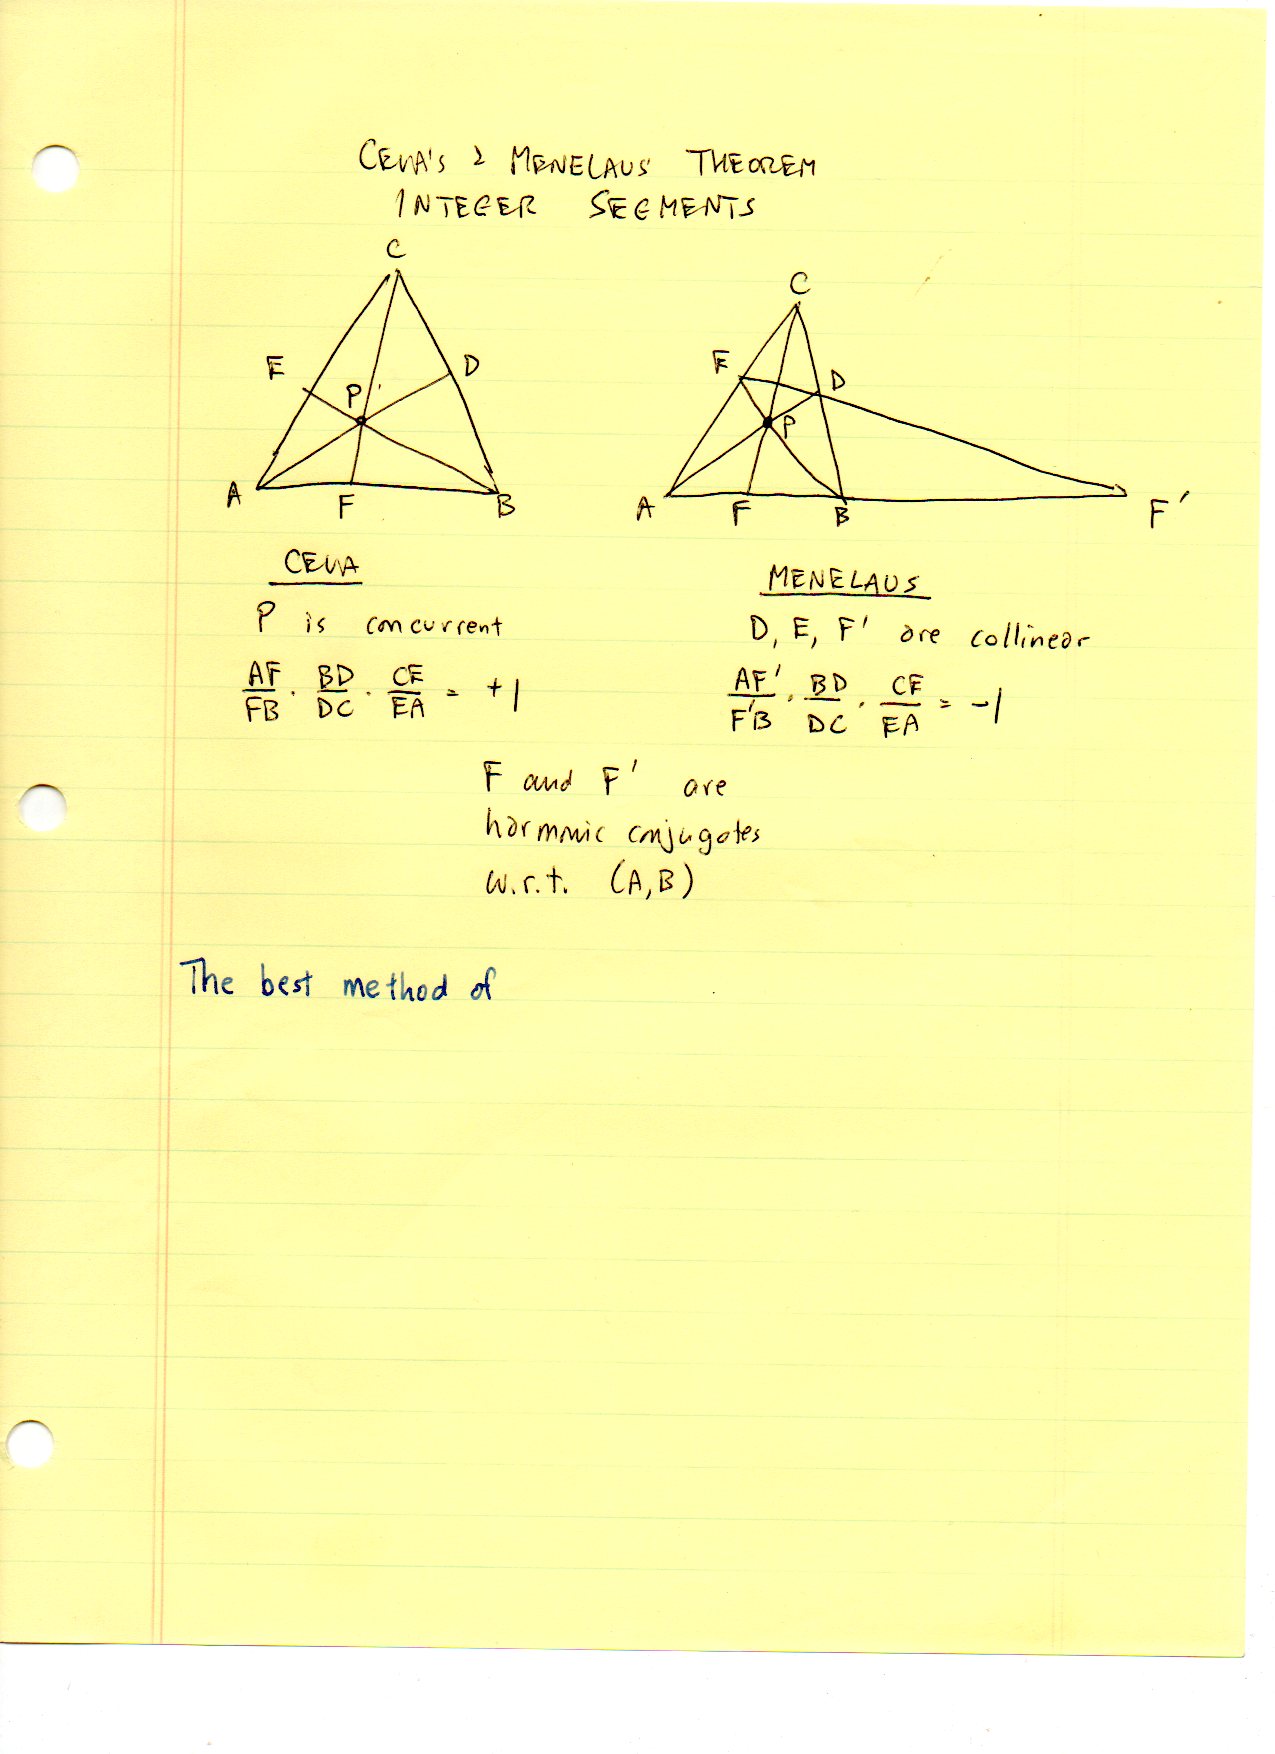 CEVA'S & MENELAUS' THEOREM
INTEGER SEGMENTS
C
E
D
P
A
F
B
C
E
D
P
A
F
B
F'
CEVA
P is concurrent
AF/FB · BD/DC · CE/EA = +1
MENELAUS
D, E, F' are collinear
AF'/F'B · BD/DC · CE/EA = -1
F and F' are
harmonic conjugates
w.r.t. (A,B)
The best method of